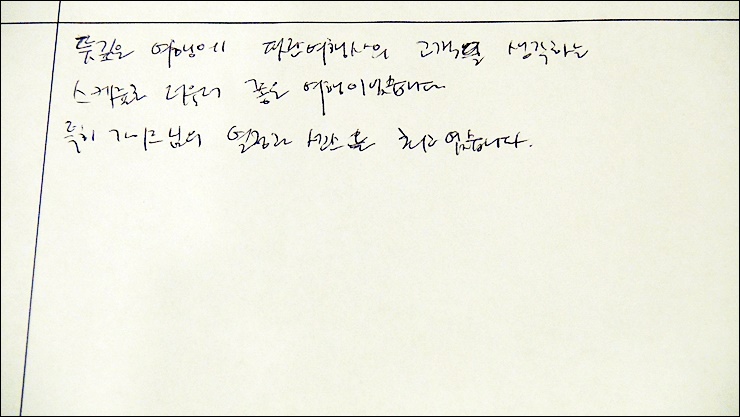 뜻깊은 여행에 파란여행사의 고객을 생각하는
스케쥴로 더욱더 좋은 여행이었습니다
특히 가이드님의 열정과 센스는 최고였습니다.